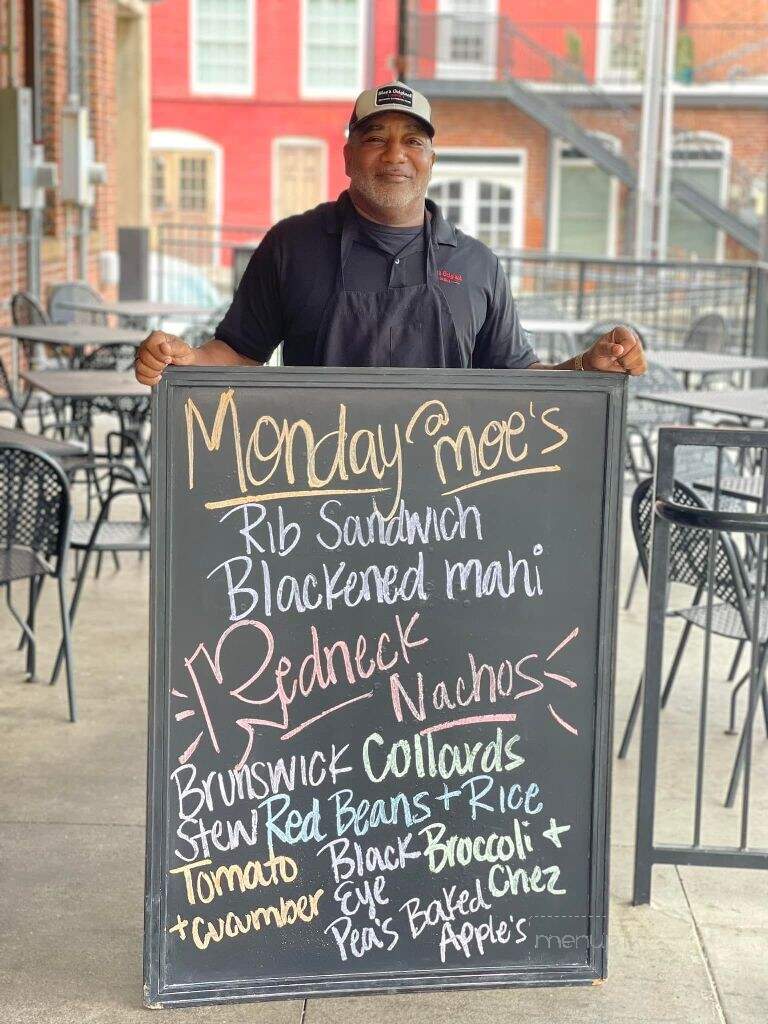 Moe's Original
Monday @ moe's
Rib Sandwich
Blackened mahi
Redneck
Nachos
Brunswick
Stew
Collards
Red Beans + Rice
Tomato
+ cucumber
Black
Eye
Pea's
Broccoli +
Chez
Baked
Apple's
menu